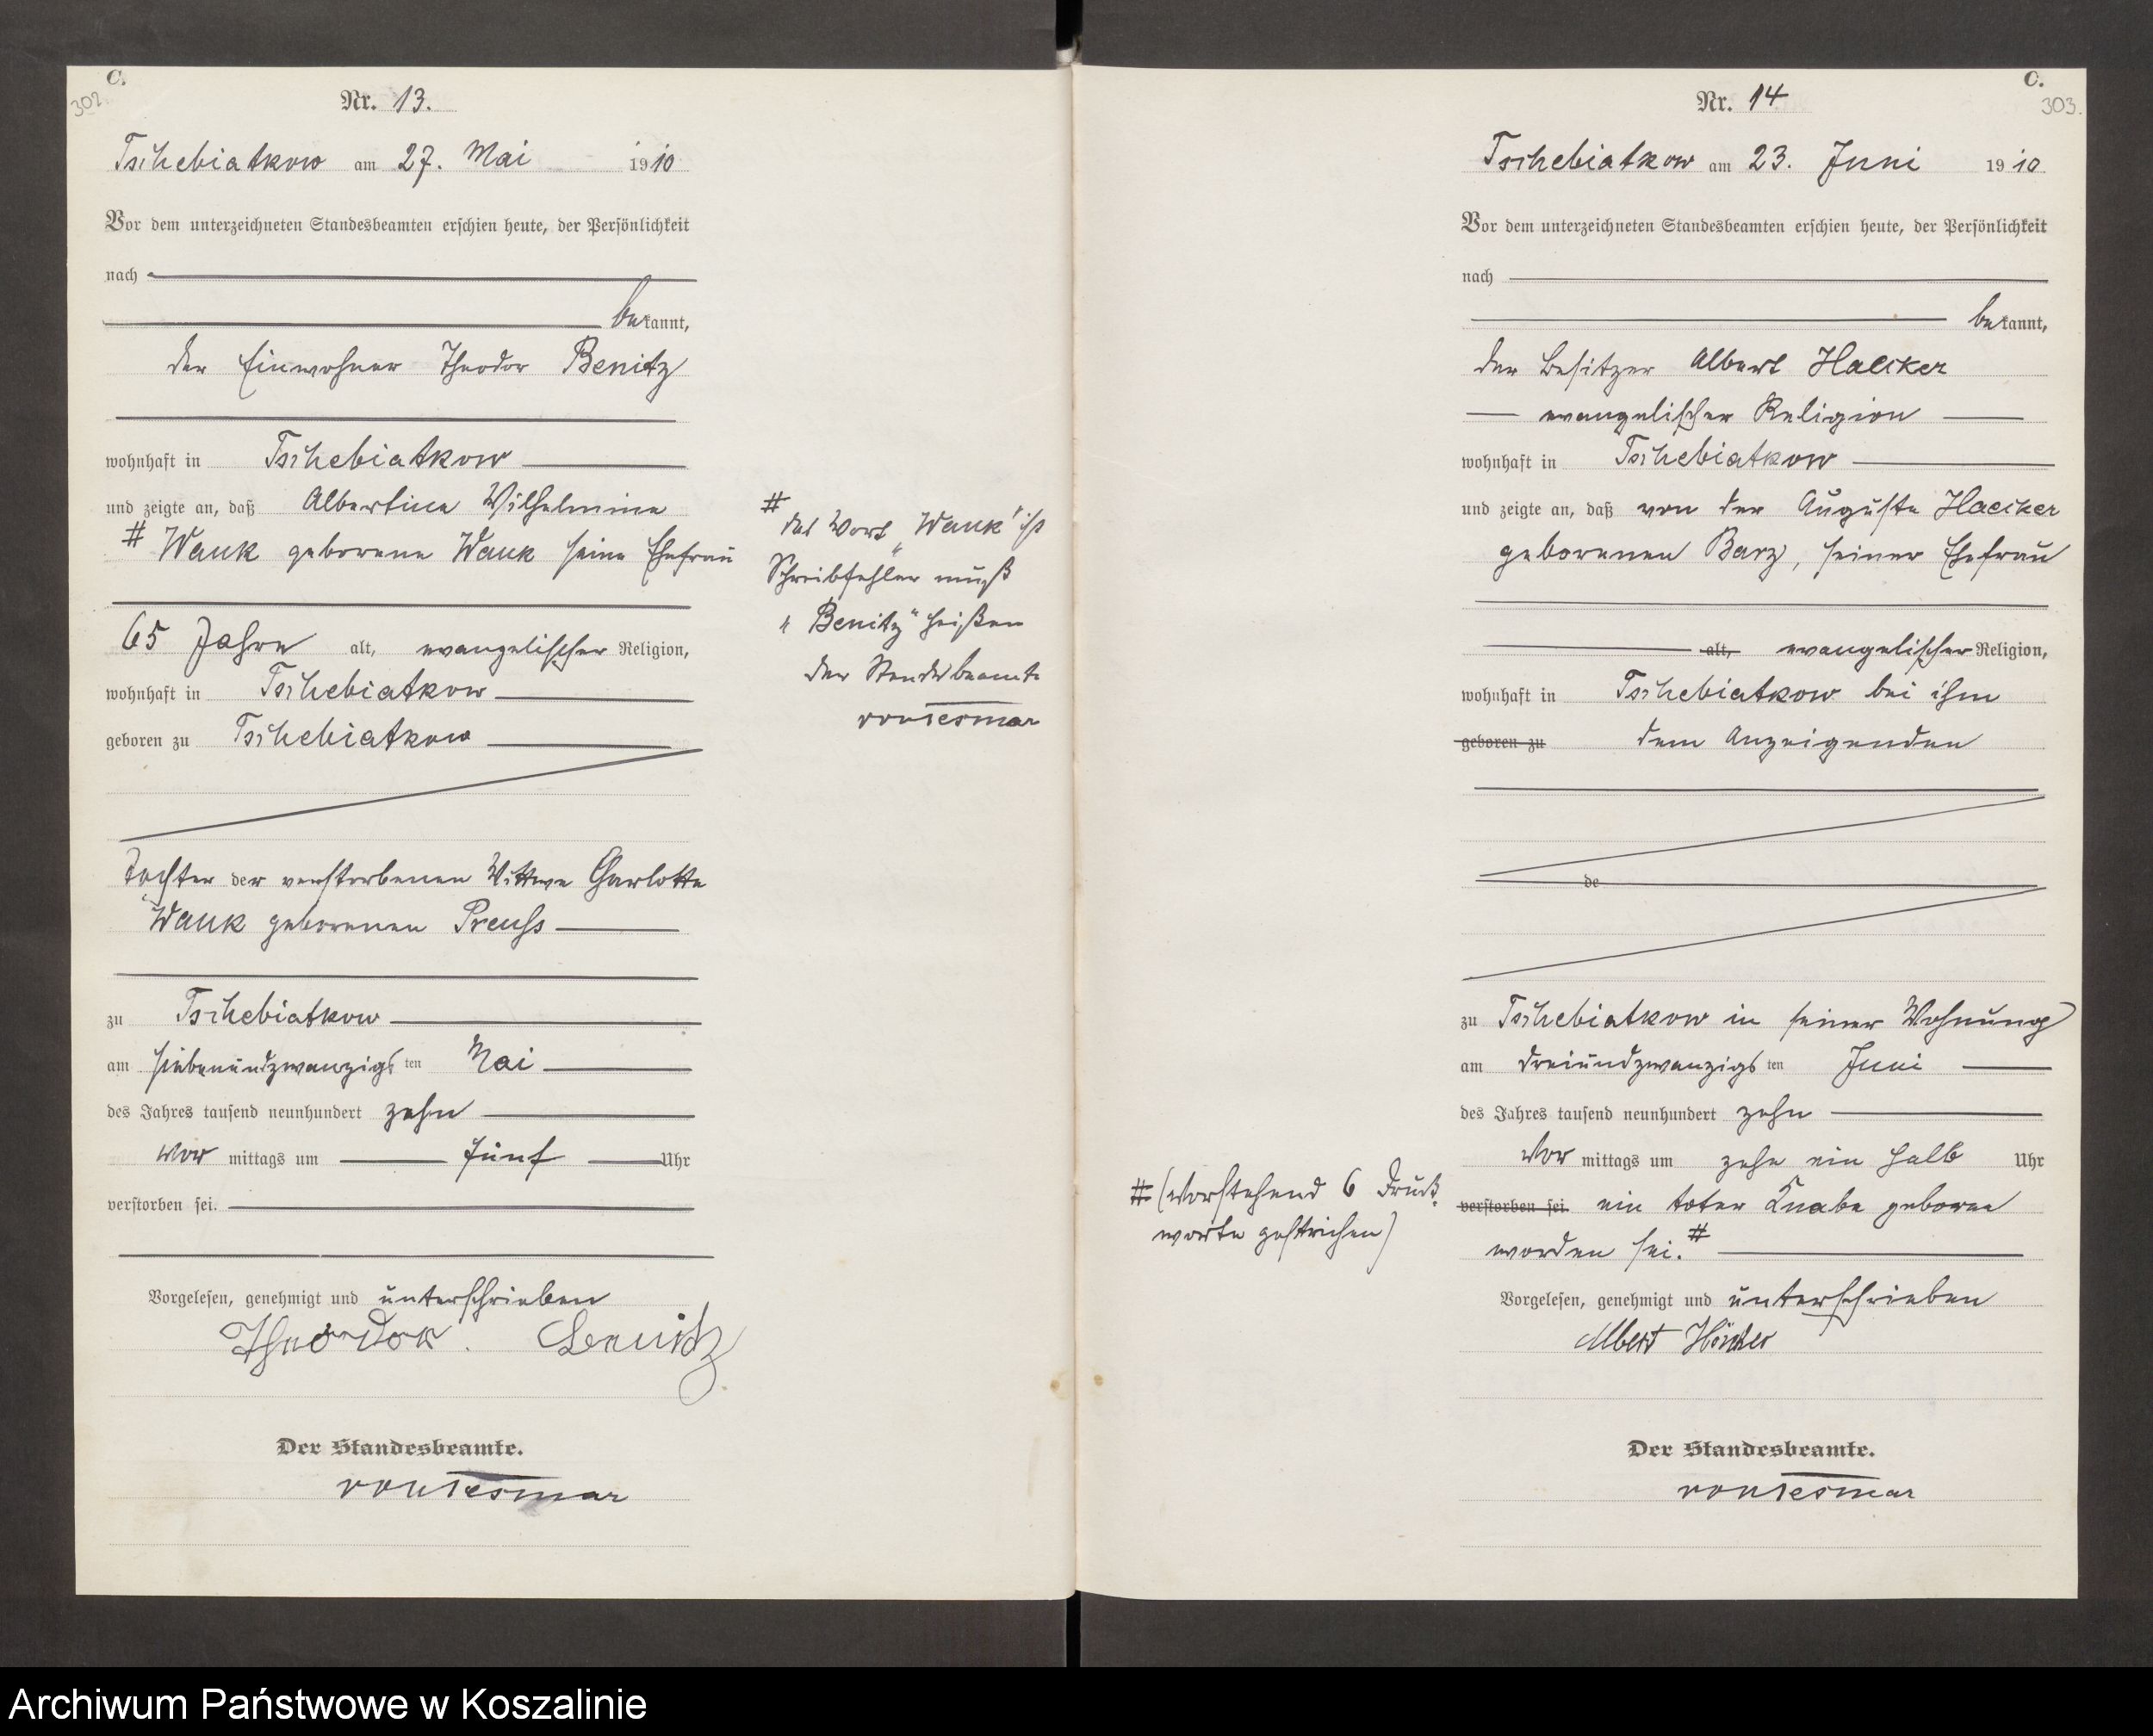 C.
302.
Nr. 13.
Tschebiatkow am 27. Mai 1910
Vor dem unterzeichneten Standesbeamten erschien heute, der Persönlichkeit
nach
bekannt,
der Einwohner Theodor Benitz
wohnhaft in Tschebiatkow
und zeigte an, daß Albertine Wilhelmine
# Wauk geborene Wauk seine Ehefrau
65 Jahre alt, evangelischer Religion,
wohnhaft in Tschebiatkow
geboren zu Tschebiatkow
Tochter der verstorbenen Wittwe Charlotte
Wauk geborenen Preuss
zu Tschebiatkow
am siebenundzwanzigsten Mai
des Jahres tausend neunhundert zehn
vor mittags um fünf Uhr
verstorben sei.
Vorgelesen, genehmigt und unterschrieben
Theodor Benitz
Der Standesbeamte.
von Tesmar
#
das Wort „Wauk" ist
Schreibfehler muß
„Benitz" heißen
Der Standesbeamte
von Tesmar
C.
303.
Nr. 14
Tschebiatkow am 23. Juni 1910
Vor dem unterzeichneten Standesbeamten erschien heute, der Persönlichkeit
nach
bekannt,
der Besitzer Albert
evangelischer Religion
wohnhaft in Tschebiatkow
und zeigte an, daß von der Auguste
geborenen Barz, seiner Ehefrau
alt, evangelischer Religion,
wohnhaft in Tschebiatkow bei ihm
geboren zu dem Anzeigenden
de
zu Tschebiatkow in seiner Wohnung
am dreiundzwanzigsten Juni
des Jahres tausend neunhundert zehn
vor mittags um zehn ein halb Uhr
verstorben sei. ein toter Knabe geboren
worden sei. #
# (vorstehend 6 Druck-
worte gestrichen)
Vorgelesen, genehmigt und unterschrieben
Albert
Der Standesbeamte.
von Tesmar
Archiwum Państwowe w Koszalinie